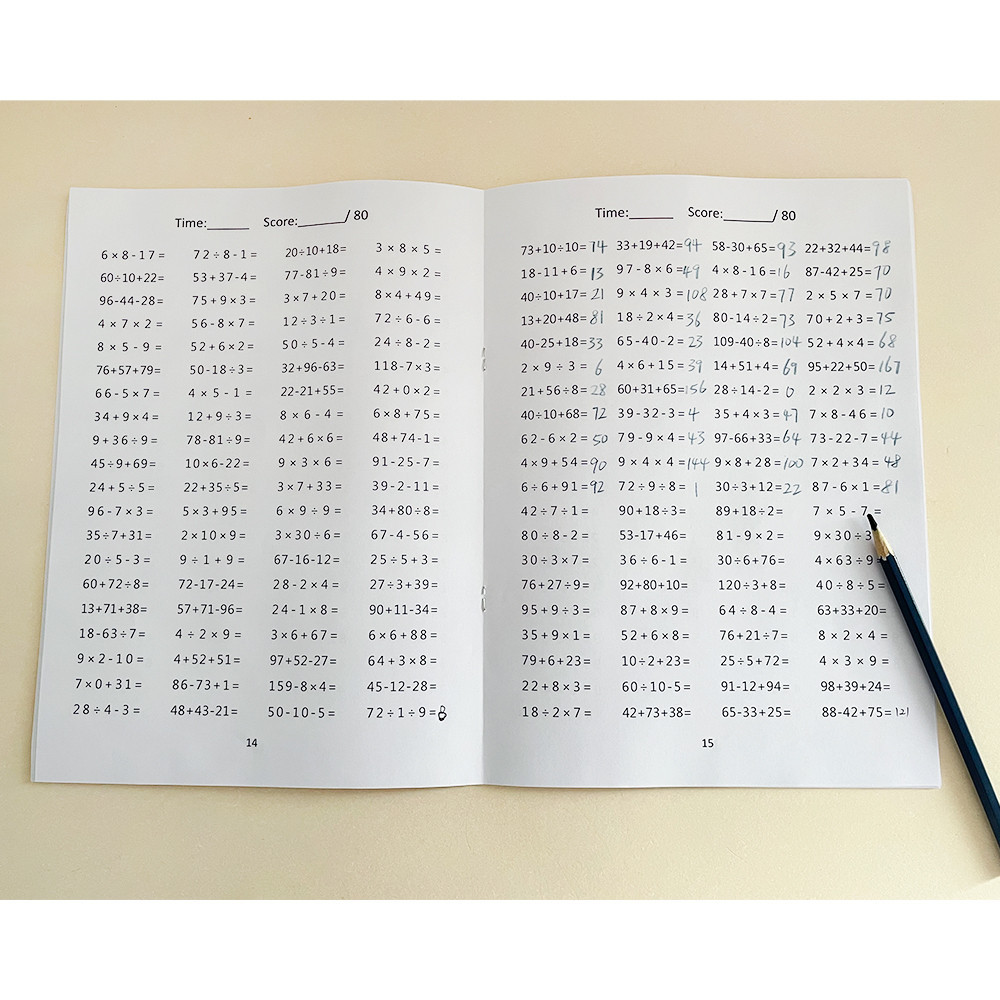 Time:______ Score:_______/ 80
6×8-17= 72÷8-1= 20÷10+18= 3×8×5=
60÷10+22= 53+37-4= 77-81÷9= 4×9×2=
96-44-28= 75+9×3= 3×7+20= 8×4+49=
4×7×2= 56-8×7= 12÷3÷1= 72÷6-6=
8×5-9= 52+6×2= 50÷5-4= 24÷8-2=
76+57+79= 50-18÷3= 32+96-63= 118-7×3=
66-5×7= 4×5-1= 22-21+55= 42+0×2=
34+9×4= 12+9÷3= 8×6-4= 6×8+75=
9+36÷9= 78-81÷9= 42+6×6= 48+74-1=
45÷9+69= 10×6-22= 9×3×6= 91-25-7=
24+5÷5= 22+35÷5= 3×7+33= 39-2-11=
96-7×3= 5×3+95= 6×9÷9= 34+80÷8=
35÷7+31= 2×10×9= 3×30÷6= 67-4-56=
20÷5-3= 9÷1+9= 67-16-12= 25÷5+3=
60+72÷8= 72-17-24= 28-2×4= 27÷3+39=
13+71+38= 57+71-96= 24-1×8= 90+11-34=
18-63÷7= 4÷2×9= 3×6+67= 6×6+88=
9×2-10= 4+52+51= 97+52-27= 64+3×8=
7×0+31= 86-73+1= 159-8×4= 45-12-28=
28÷4-3= 48+43-21= 50-10-5= 72÷1÷9=8
14
Time:______ Score:_______/ 80
73+10÷10=74 33+19+42=94 58-30+65=93 22+32+44=98
18-11+6=13 97-8×6=49 4×8-16=16 87-42+25=70
40÷10+17=21 9×4×3=108 28+7×7=77 2×5×7=70
13+20+48=81 18÷2×4=36 80-14÷2=73 70+2+3=75
40-25+18=33 65-40-2=23 109-40÷8=104 52+4×4=68
2×9÷3=6 4×6+15=39 14+51+4=69 95+22+50=167
21+56÷8=28 60+31+65=156 28÷14-2=0 2×2×3=12
40÷10+68=72 39-32-3=4 35+4×3=47 7×8-46=10
62-6×2=50 79-9×4=43 97-66+33=64 73-22-7=44
4×9+54=90 9×4×4=144 9×8+28=100 7×2+34=48
6÷6+91=92 72÷9÷8=1 30÷3+12=22 87-6×1=81
42÷7÷1= 90+18÷3= 89+18÷2= 7×5-7=
80÷8-2= 53-17+46= 81-9×2= 9×30÷3
30÷3×7= 36÷6-1= 30÷6+76= 4×63÷9
76+27÷9= 92+80+10= 120÷3+8= 40÷8÷5=
95+9÷3= 87+8×9= 64÷8-4= 63+33+20=
35+9×1= 52+6×8= 76+21÷7= 8×2×4=
79+6+23= 10÷2+23= 25÷5+72= 4×3×9=
22+8×3= 60÷10-5= 91-12+94= 98+39+24=
18÷2×7= 42+73+38= 65-33+25= 88-42+75=121
15